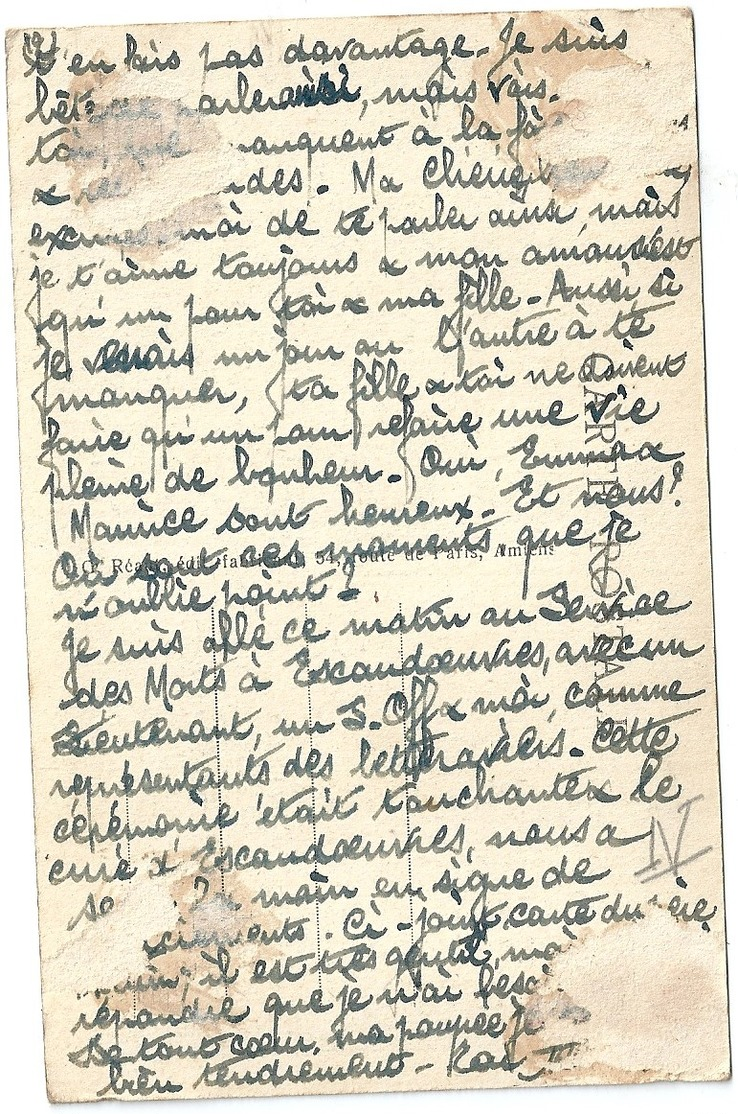 t'en fais pas davantage. Je suis
bête parler ainsi, mais vois-
toi, que manquent à la
& . Ma
excuses moi de te parler ainsi, mais
je t'aime toujours & mon amour n'est
qu'un pour toi & ma fille. Aussi, si
je venais un jour ou l'autre à te
manquer, ta fille & toi ne doivent
faire qu'un pour refaire une vie
pleine de bonheur. Oui, Emma &
Maurice sont heureux. Et nous?
Où sont ces moments que je
édit. 54, route de Paris, Amiens
n'oublie point!
Je suis allé ce matin au Service
des Morts à Escaudoeuvres, avec un
Lieutenant, un S. Off & moi, comme
représentants des
cérémonie était touchante & le
curé d'Escaudoeuvres, nous a
la main en signe de
. Ci-joint carte du
il est très gentil,
répondre que je n'ai
De tout coeur, ma poupée je
bien tendrement -
CARTE POSTALE
IV